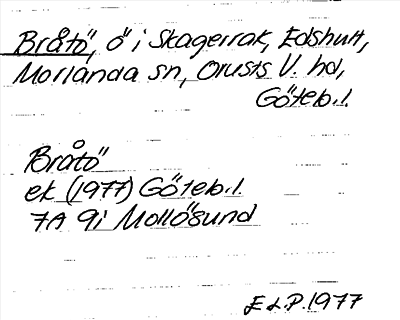 Bråtö, ö i Skagerrak, Edshult,
Morlanda sn, Orusts V. hd,
Göteb. l.
Bråtö
ek (1977) Göteb. l.
7A 9i Mollösund
E L.P. 1977